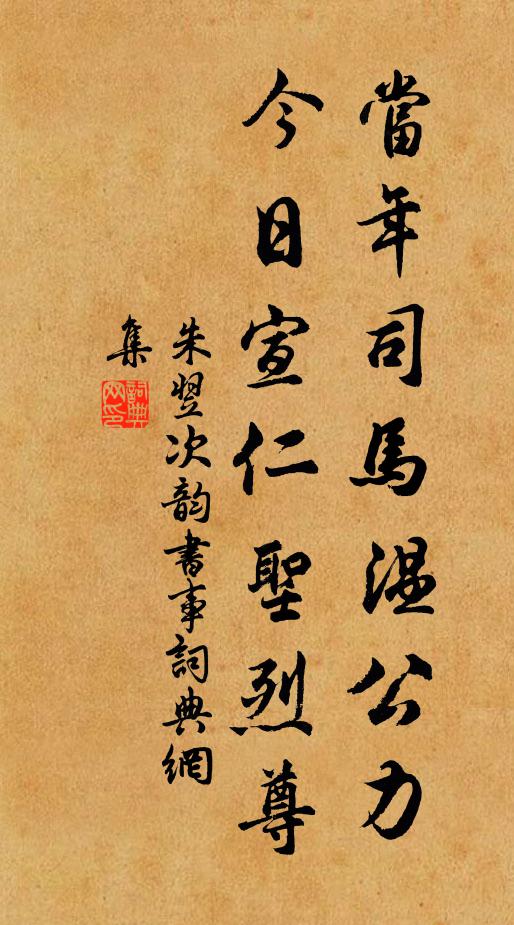 當年司馬温公力
今日宣仁聖烈尊
朱翌次韵書事詞典網
集
詞典网印